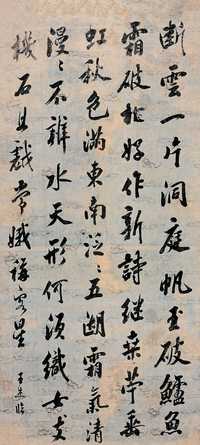 斷雲一片洞庭帆玉破鱸魚
霜破柑好作新詩繼桑苧垂
虹秋色滿東南泛〻五湖霜氣清
漫〻不辨水天形何須織女支
機石且戲常娥稱客星